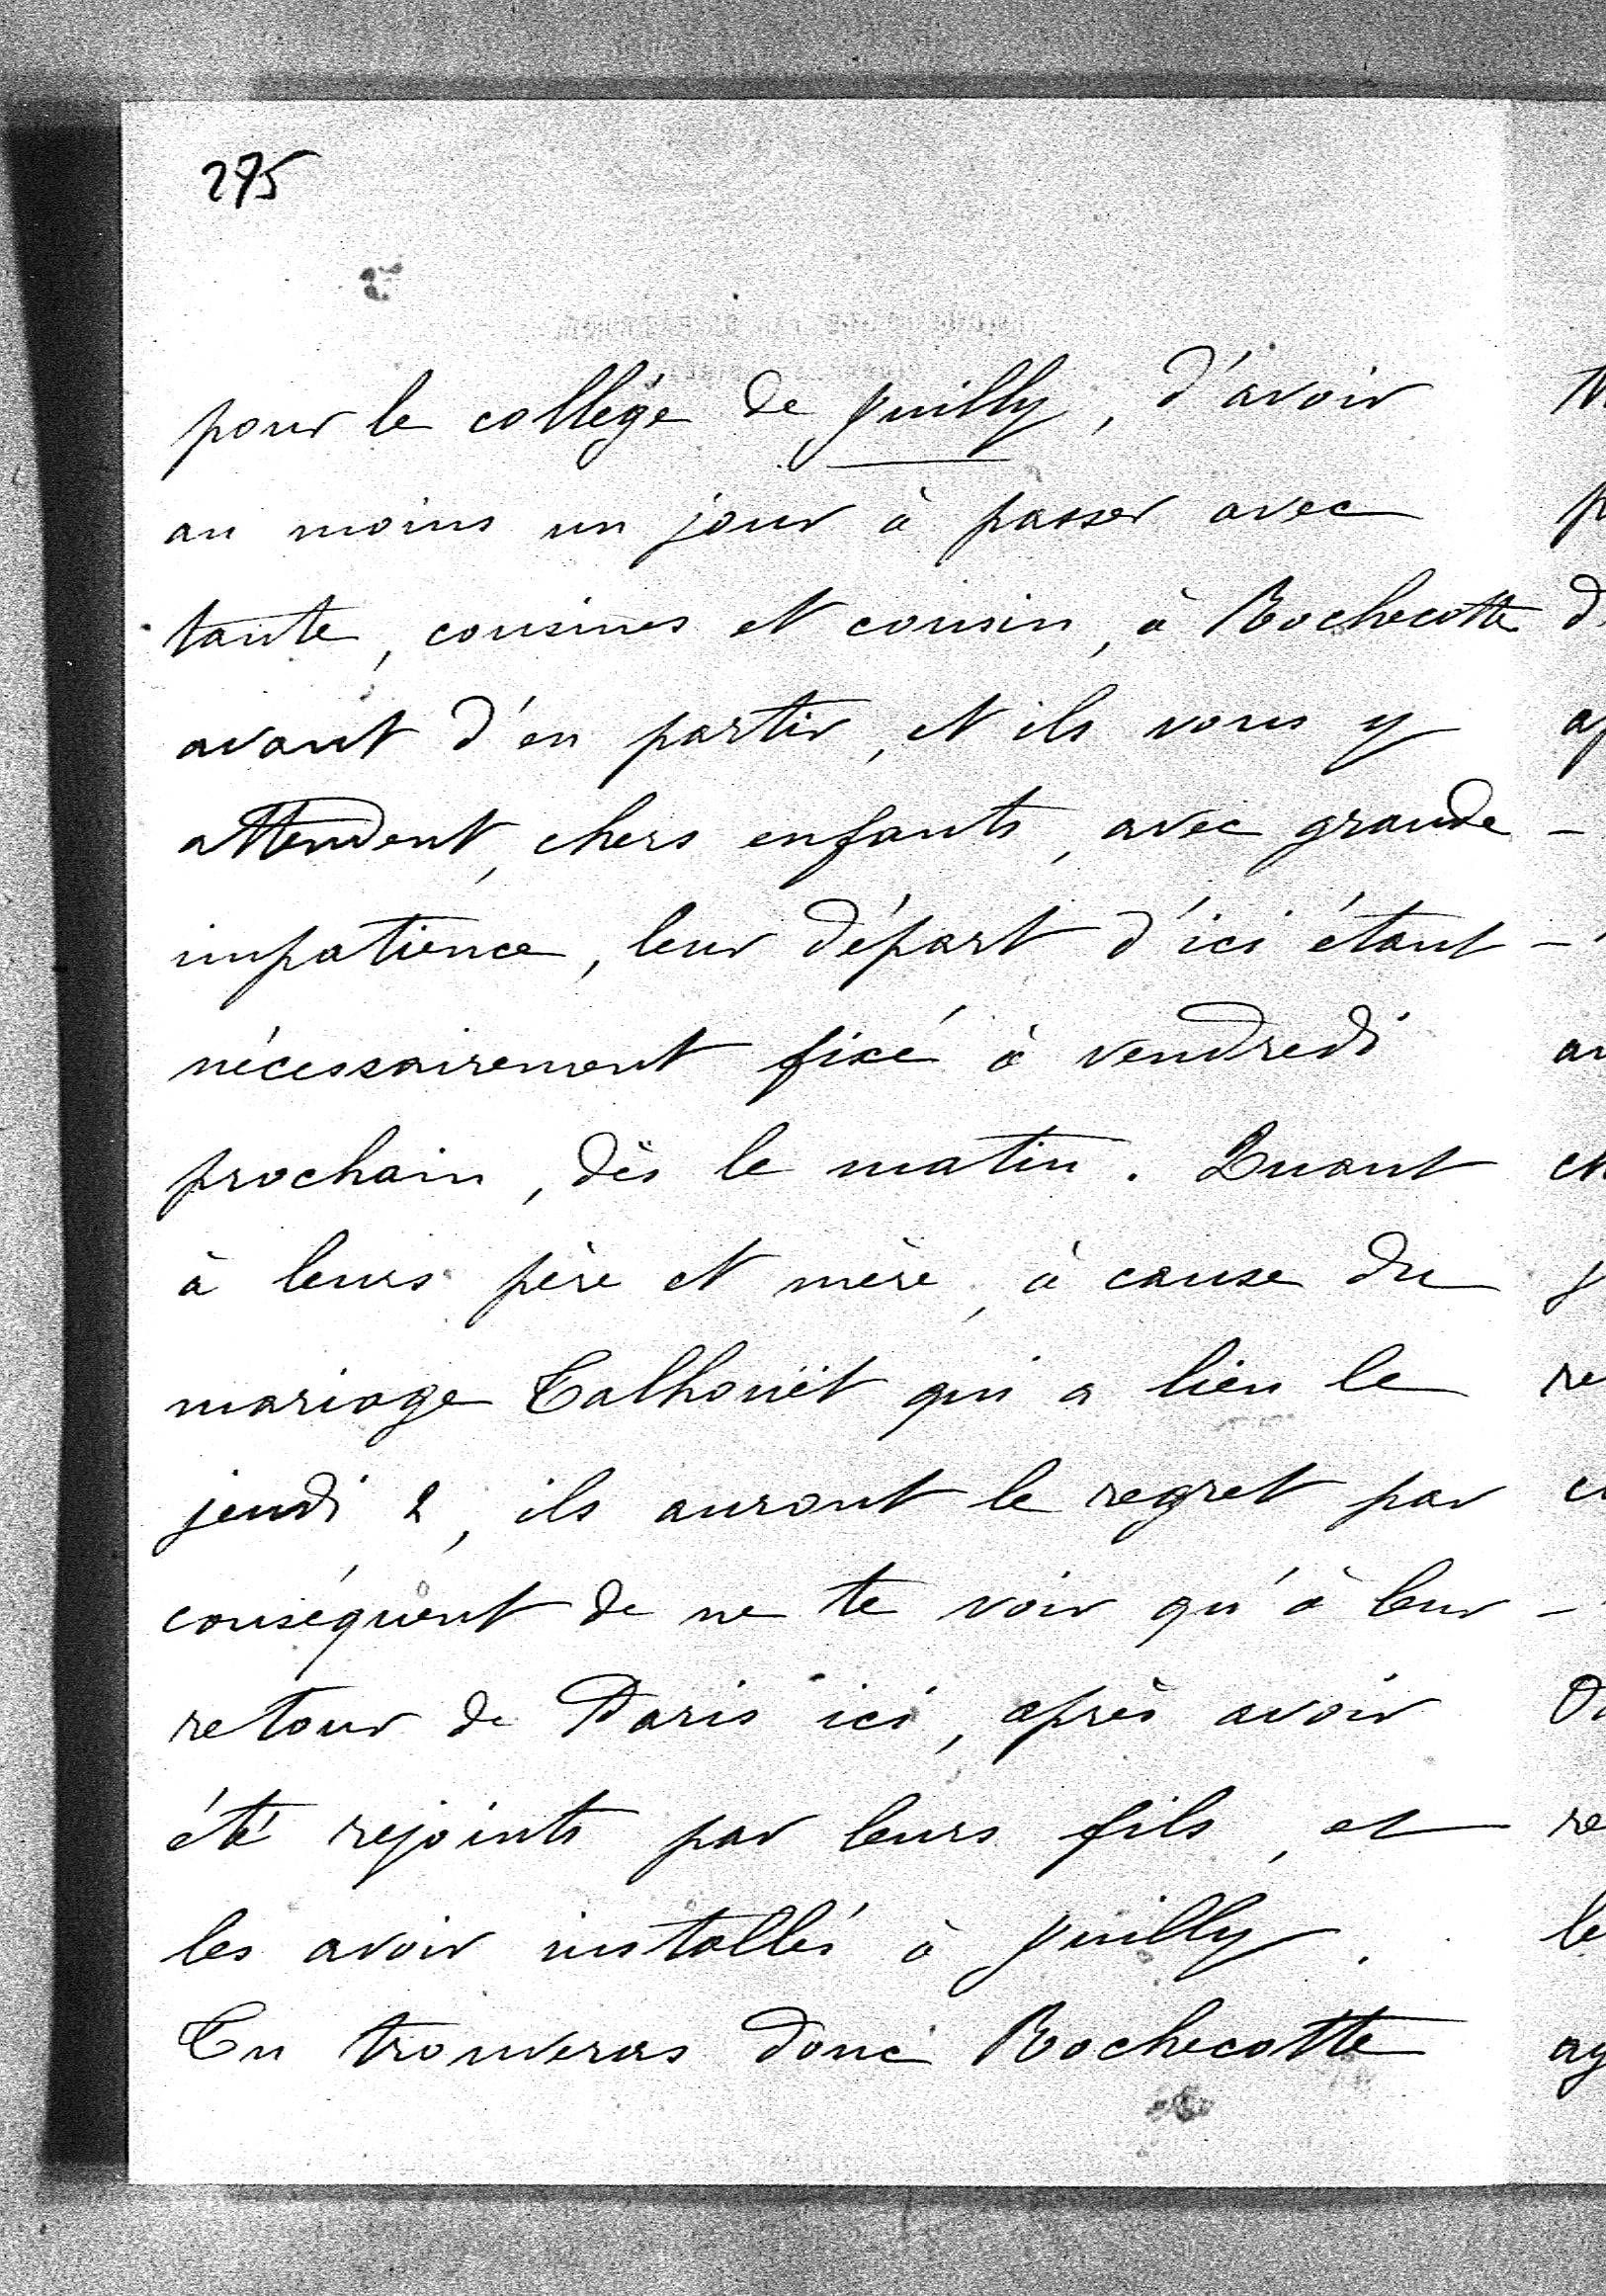 275
pour le collége de Juilly, d'avoir
au moins un jour à passer avec
tante, cousines et cousin, à Rochecotte
avant d'en partir, et ils vous y
attendent, chers enfants, avec grande
impatience, leur départ d'ici étant
nécessairement fixé à vendredi
prochain, dès le matin. Quant
à leurs père et mère, à cause du
mariage Talhouët qui a lieu le
jeudi 2, ils auront le regret par
conséquent de ne te voir qu'à leur
retour de Paris ici, après avoir
été rejoints par leurs fils, et
les avoir installés à Juilly.
Tu trouveras donc Rochecotte